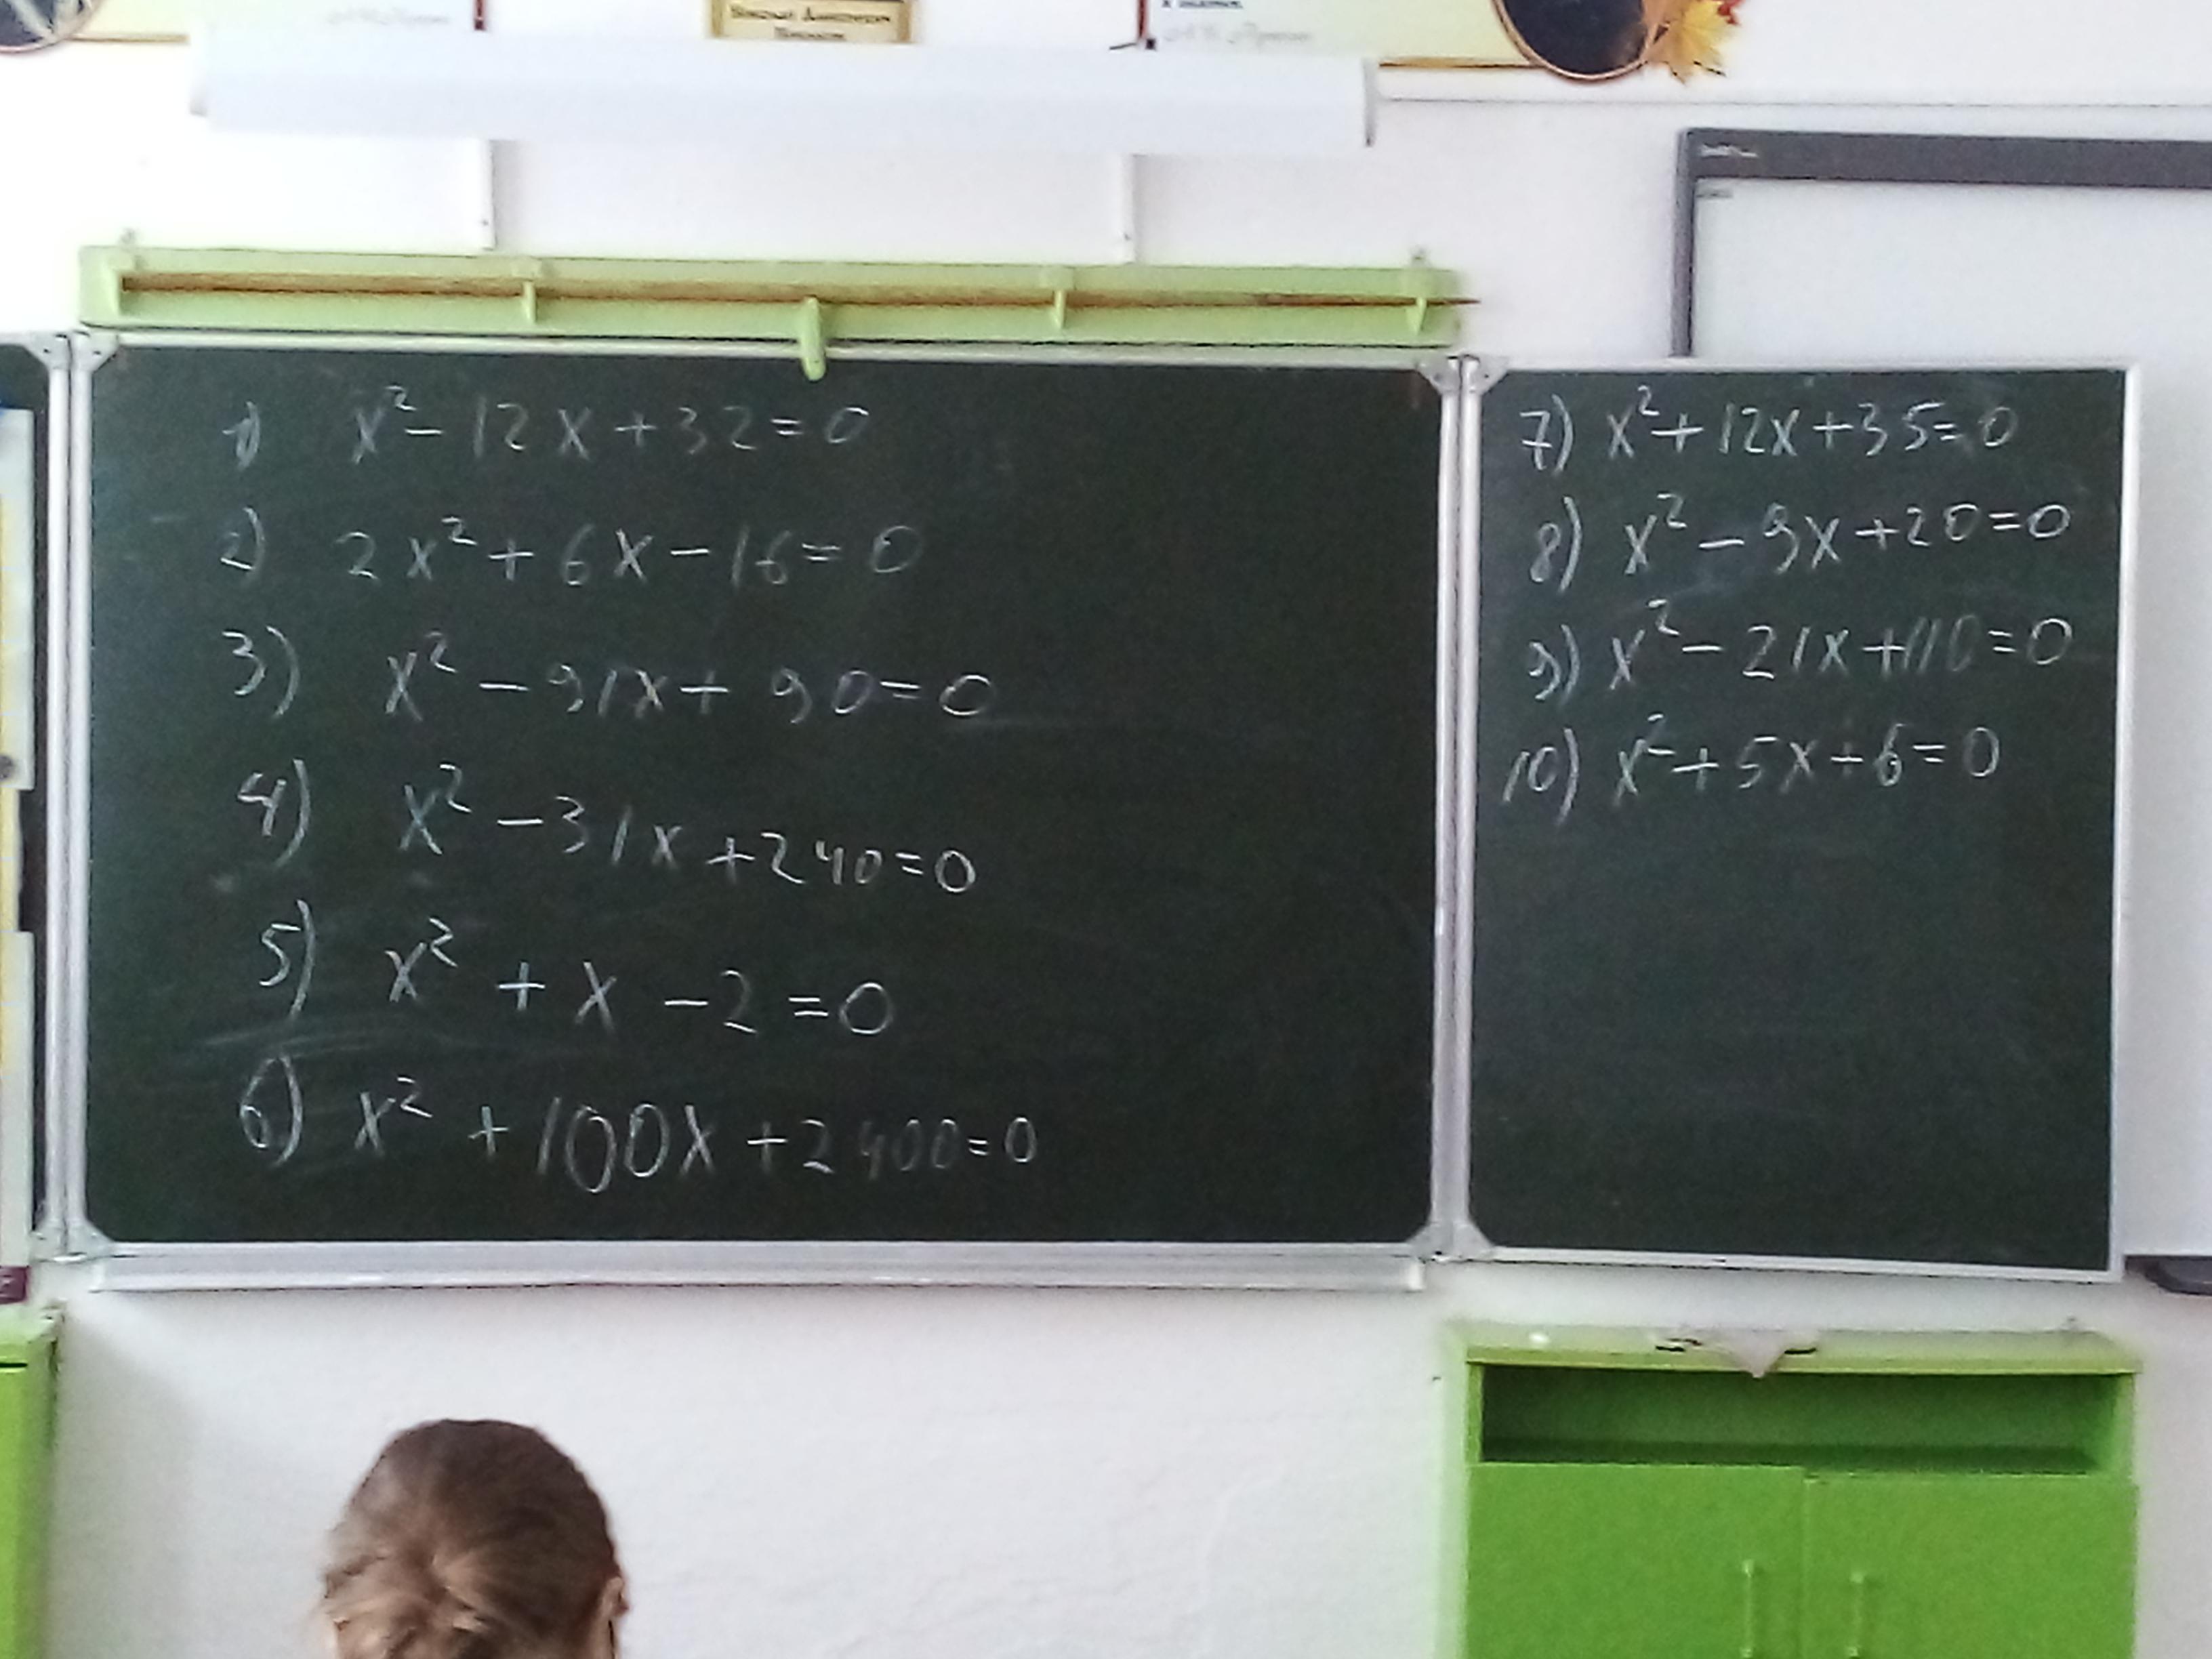 1) x² - 12x + 32 = 0
2) 2x² + 6x - 16 = 0
3) x² - 91x + 90 = 0
4) x² - 31x + 240 = 0
5) x² + x - 2 = 0
6) x² + 100x + 2400 = 0
7) x² + 12x + 35 = 0
8) x² - 9x + 20 = 0
9) x² - 21x + 110 = 0
10) x² + 5x + 6 = 0